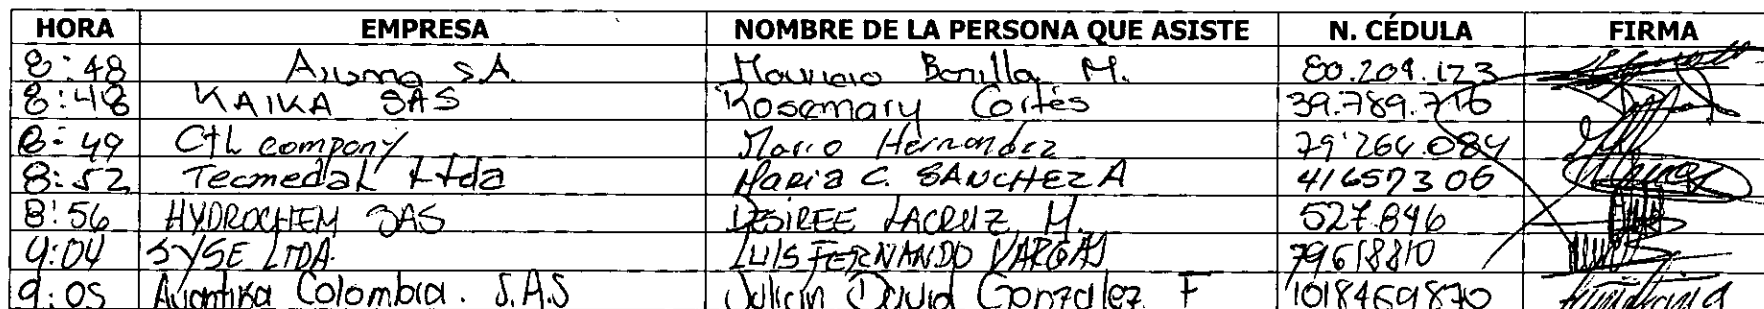 HORA EMPRESA NOMBRE DE LA PERSONA QUE ASISTE N. CÉDULA FIRMA
8:48 S.A. Mauricio Bonilla M. 80.209.173
8:48 KAIKA SAS Rosemary Cortés 39.789.716
8:49 CTL company Mario Hernandez 79'264.084
8:52 Tecmedal Ltda Maria C. SANCHEZ A 41657306
8:56 HYDROCHEM SAS DESIREE LACRUZ M. 527.846
9:04 SYSE LTDA. LUIS FERNANDO VARGAS 79618810
9:05 Avantika Colombia. S.A.S Julián David Gonzalez F 1018469870